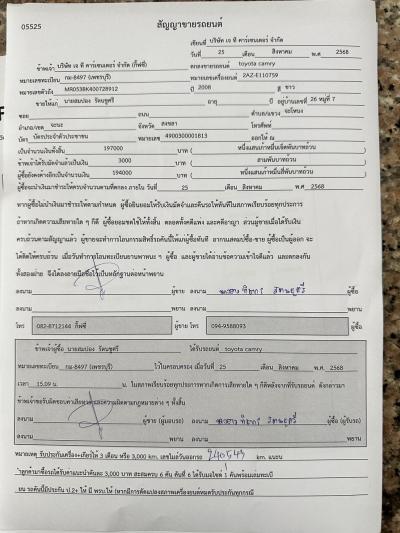 05525
สัญญาขายรถยนต์
เขียนที่ บริษัท เจ ที คาร์เซนเตอร์ จำกัด
วันที่ 25 เดือน สิงหาคม พ.ศ 2568
ข้าพเจ้า บริษัท เจ ที คาร์เซนเตอร์ จำกัด (กิ๊ฟซี่) ตกลงขายรถยนต์ toyota camry
หมายเลขทะเบียน กม-8497 (เพชรบุรี) หมายเลขเครื่องยนต์ 2AZ-E110759
หมายเลขตัวถัง MR053BK400728912 ปี 2008 สี ขาว
ขายให้แก่ นายสมปอง รัตนชูศรี อายุ ปี อยู่บ้านเลขที่ 26 หมู่ที่ 7
ซอย ถนน ตำบล/แขวง จะโหนง
อำเภอ/เขต จะนะ จังหวัด สงขลา โทรศัพท์
บัตร บัตรประจำตัวประชาชน หมายเลข 4900300001813 ออกให้ ณ
เป็นจำนวนเงินทั้งสิ้น 197000 บาท ( หนึ่งแสนเก้าหมื่นเจ็ดพันบาทถ้วน
ข้าพเจ้าได้รับมัดจำแล้วเป็นเงิน 3000 บาท ( สามพันบาทถ้วน
ผู้ซื้อยังคงค้างอีกเป็นจำนวนเงิน 194000 บาท ( หนึ่งแสนเก้าหมื่นสี่พันบาทถ้วน
ผู้ซื้อจะนำเงินมาชำระให้ครบจำนวนตามที่ตกลง ภายใน วันที่ 25 เดือน สิงหาคม พ.ศ 2568
หากผู้ซื้อไม่นำเงินมาชำระให้ตามกำหนด ผู้ซื้อยินยอมให้ริบเงินมัดจำและคืนรถให้ทันทีในสภาพเรียบร้อยทุกประการ
ถ้าหากเกิดความเสียหายใด ๆ ก็ดี ผู้ซื้อยอมชดใช้ให้ทั้งสิ้น ตลอดทั้งคดีแพ่ง และคดีอาญา ส่วนผู้ขายเมื่อได้รับเงิน
ครบถ้วนตามสัญญาแล้ว ผู้ขายจะทำการโอนกรรมสิทธิ์รถคันนี้ให้แก่ผู้ซื้อทันที อากรแสตมป์ซื้อ-ขาย ผู้ซื้อเป็นผู้ออก จะ
ทั้งสองฝ่าย จึงได้ลงลายมือชื่อไว้เป็นหลักฐานต่อหน้าพยาน
ลงนาม ผู้ขาย ลงนาม ผู้ซื้อ
ลงนาม พยาน ลงนาม พยาน
โทร 082-8712144 กิ๊ฟซี่ ผู้ขาย โทร 094-9588093 ผู้ซื้อ
ข้าพเจ้าผู้ซื้อ นายสมปอง รัตนชูศรี ได้รับรถยนต์ toyota camry
หมายเลขทะเบียน กม-8497 (เพชรบุรี) ไว้ในครอบครอง เมื่อวันที่ 25 เดือน สิงหาคม พ.ศ 2568
เวลา 15.09 น. น. ในสภาพเรียบร้อยทุกประการหากเกิดการเสียหายใด ๆ ก็ดีหลังจากที่รับรถยนต์ ดังกล่าวมา
ข้าพเจ้าขอรับผิดชอบค่าเสียหายและความผิดตามกฎหมายต่าง ๆ ทั้งสิ้น
ลงนาม ผู้ขาย (ผู้มอบรถ) ลงนาม ผู้ซื้อ (ผู้รับรถ)
ลงนาม พยาน ลงนาม พยาน
หมายเหตุ รับประกันเครื่อง+เกียร์ให้ 3 เดือน หรือ 3,000 km. เลขไมล์วันออกรถ 240543 km.